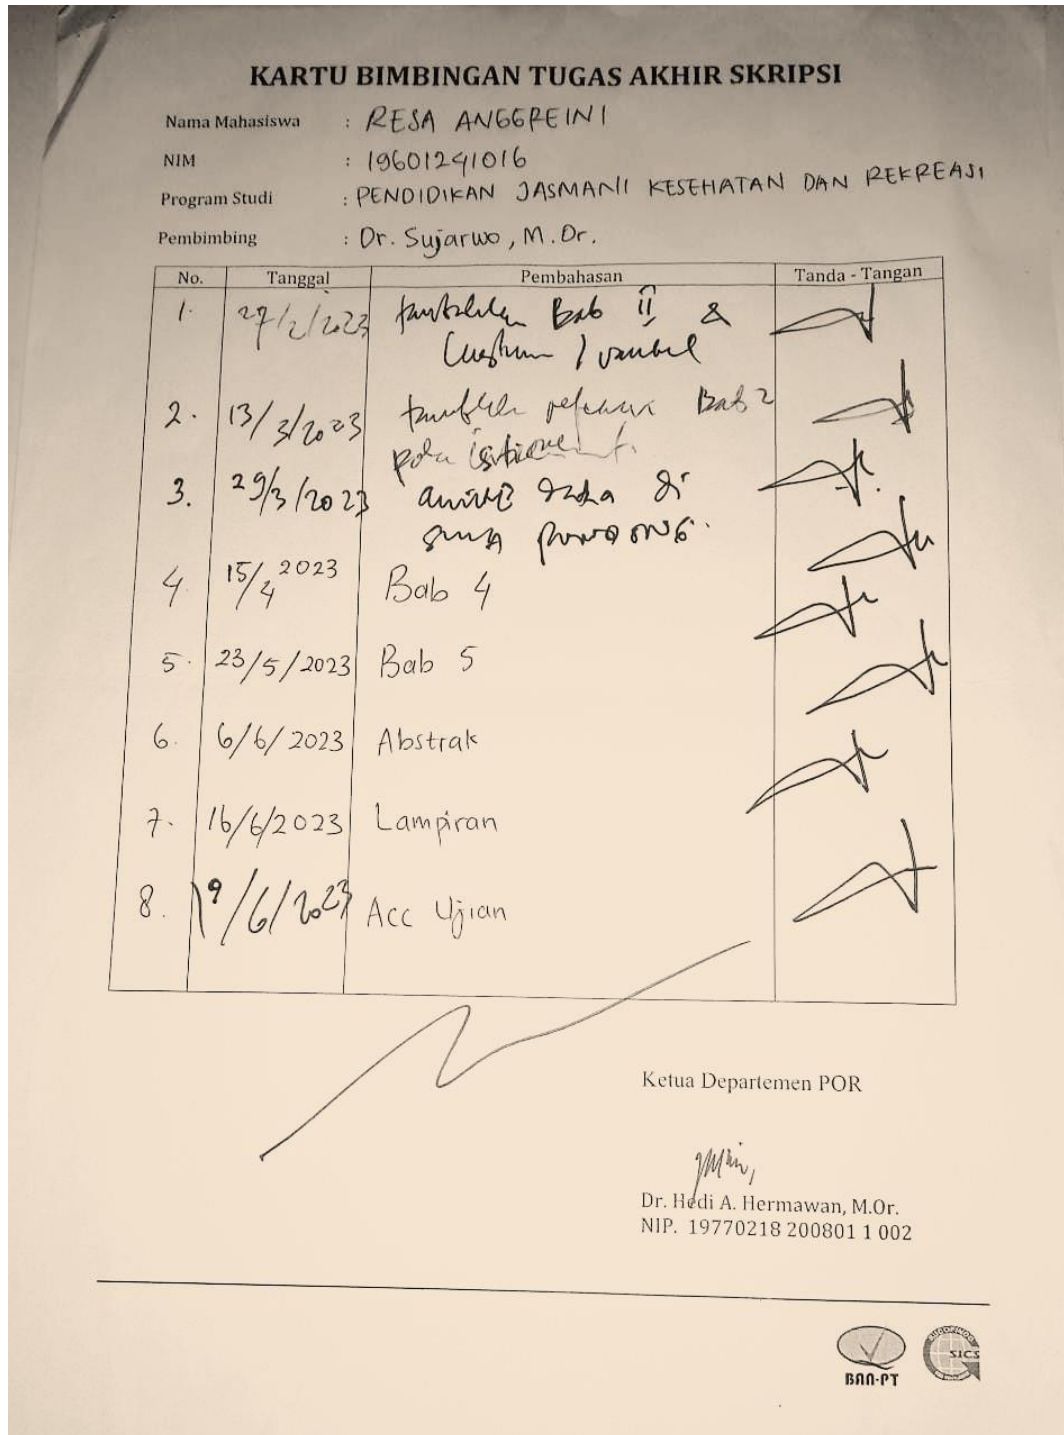 KARTU BIMBINGAN TUGAS AKHIR SKRIPSI
Nama Mahasiswa : RESA ANGGREINI
NIM : 19601241016
Program Studi : PENDIDIKAN JASMANI KESEHATAN DAN REKREASI
Pembimbing : Dr. Sujarwo, M.Or.
No. Tanggal Pembahasan Tanda - Tangan
1. 27/2/2023 Bab II &
2. 13/3/2023 Bab 2
pada
3. 29/3/2023 di
4. 15/4 2023 Bab 4
5. 23/5/2023 Bab 5
6. 6/6/2023 Abstrak
7. 16/6/2023 Lampiran
8. 19/6/2023 Acc Ujian
Ketua Departemen POR
Dr. Hedi A. Hermawan, M.Or.
NIP. 19770218 200801 1 002
BAN-PT
SICS